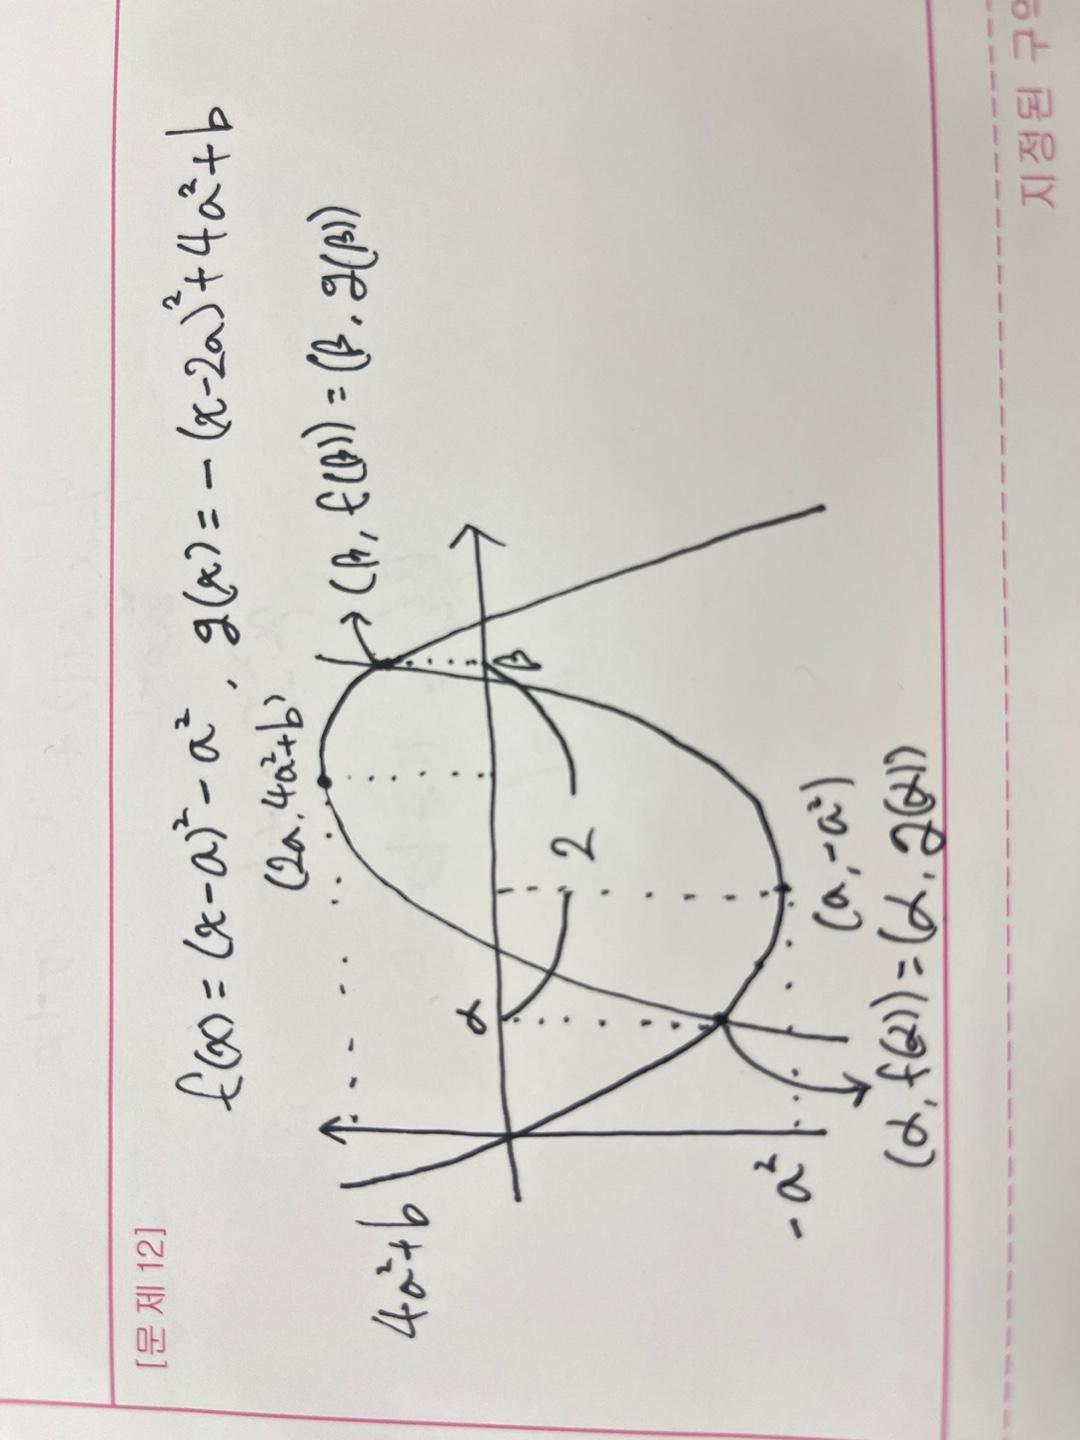 [문제 12]
f(x) = (x-a)² - a² , g(x) = -(x-2a)² + 4a² + b
(2a, 4a²+b)
(β, f(β)) = (β, g(β))
4a²+b
α
β
2
-a²
(a, -a²)
(α, f(α)) = (α, g(α))
지정된 구